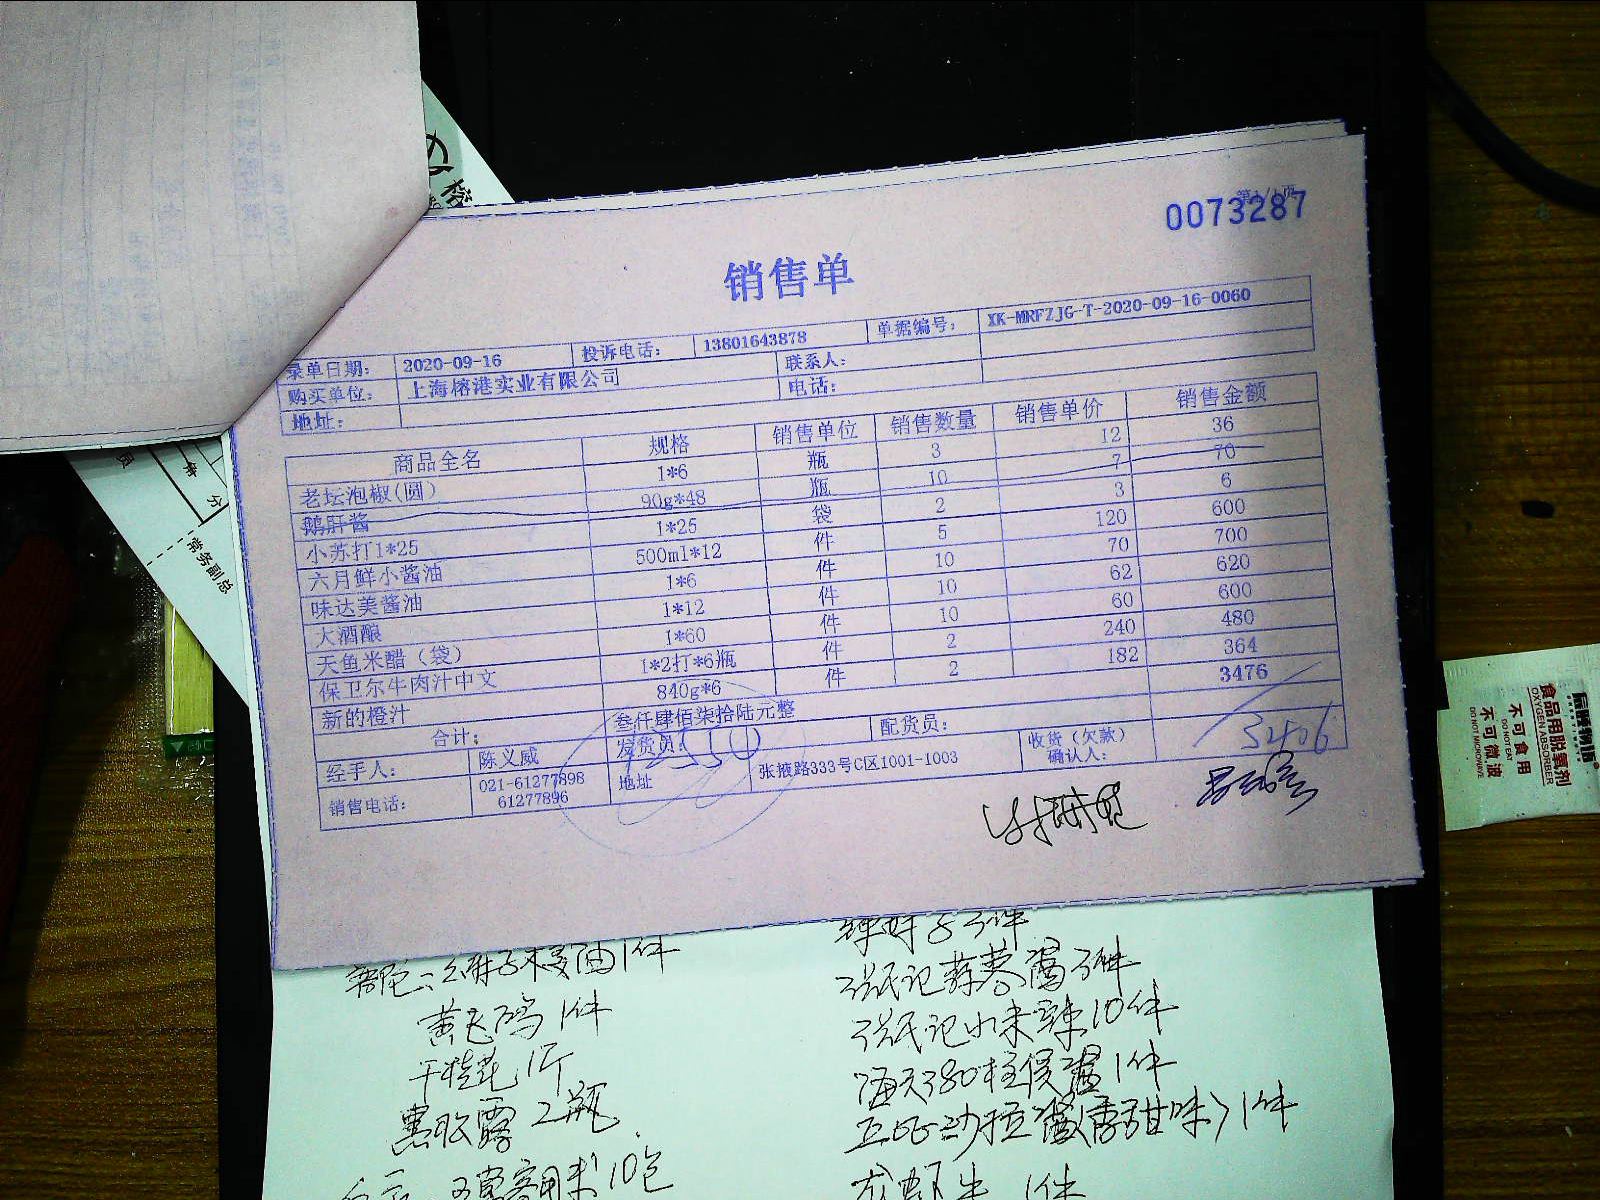 第1/1页
0073287
销售单
录单日期: 2020-09-16 投诉电话: 13801643878 单据编号: XK-MRFZJG-T-2020-09-16-0060
购买单位: 上海榕港实业有限公司 联系人:
地址: 电话:
商品全名 规格 销售单位 销售数量 销售单价 销售金额
老坛泡椒(圆) 1*6 瓶 3 12 36
鹅肝酱 90g*48 瓶 10 7 70
小苏打1*25 1*25 袋 2 3 6
六月鲜小酱油 500ml*12 件 5 120 600
味达美酱油 1*6 件 10 70 700
大酒酿 1*12 件 10 62 620
天鱼米醋（袋） 1*60 件 10 60 600
保卫尔牛肉汁中文 1*2打*6瓶 件 2 240 480
新的橙汁 840g*6 件 2 182 364
合计: 叁仟肆佰柒拾陆元整 3476
经手人: 陈义威 发货员: 配货员: 收货（欠款）确认人: 3406
销售电话: 021-61277898 61277896 地址 张掖路333号C区1001-1003
榕
常务副总
分
黄飞鸿 1件
干桂花 1斤
2瓶
10包
3件
张氏记蒜蓉酱 3件
张氏记小米辣 10件
1件
沙拉酱(香甜味) 1件
1件
扇牌物语
食品用脱氧剂
OXYGEN ABSORBER
不可食用
DO NOT EAT
不可微波
DO NOT MICROWAVE